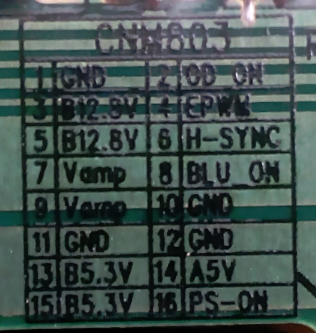 CNM803
1 GND 2 OD_ON
3 B12.8V 4 EPWM
5 B12.8V 6 H-SYNC
7 Vamp 8 BLU_ON
9 Vamp 10 GND
11 GND 12 GND
13 B5.3V 14 A5V
15 B5.3V 16 PS-ON